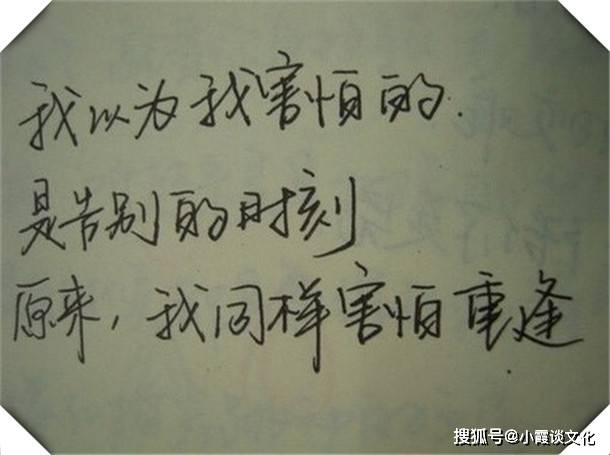 我以为我害怕的.
是告别的时刻
原来，我同样害怕重逢
搜狐号@小霞谈文化